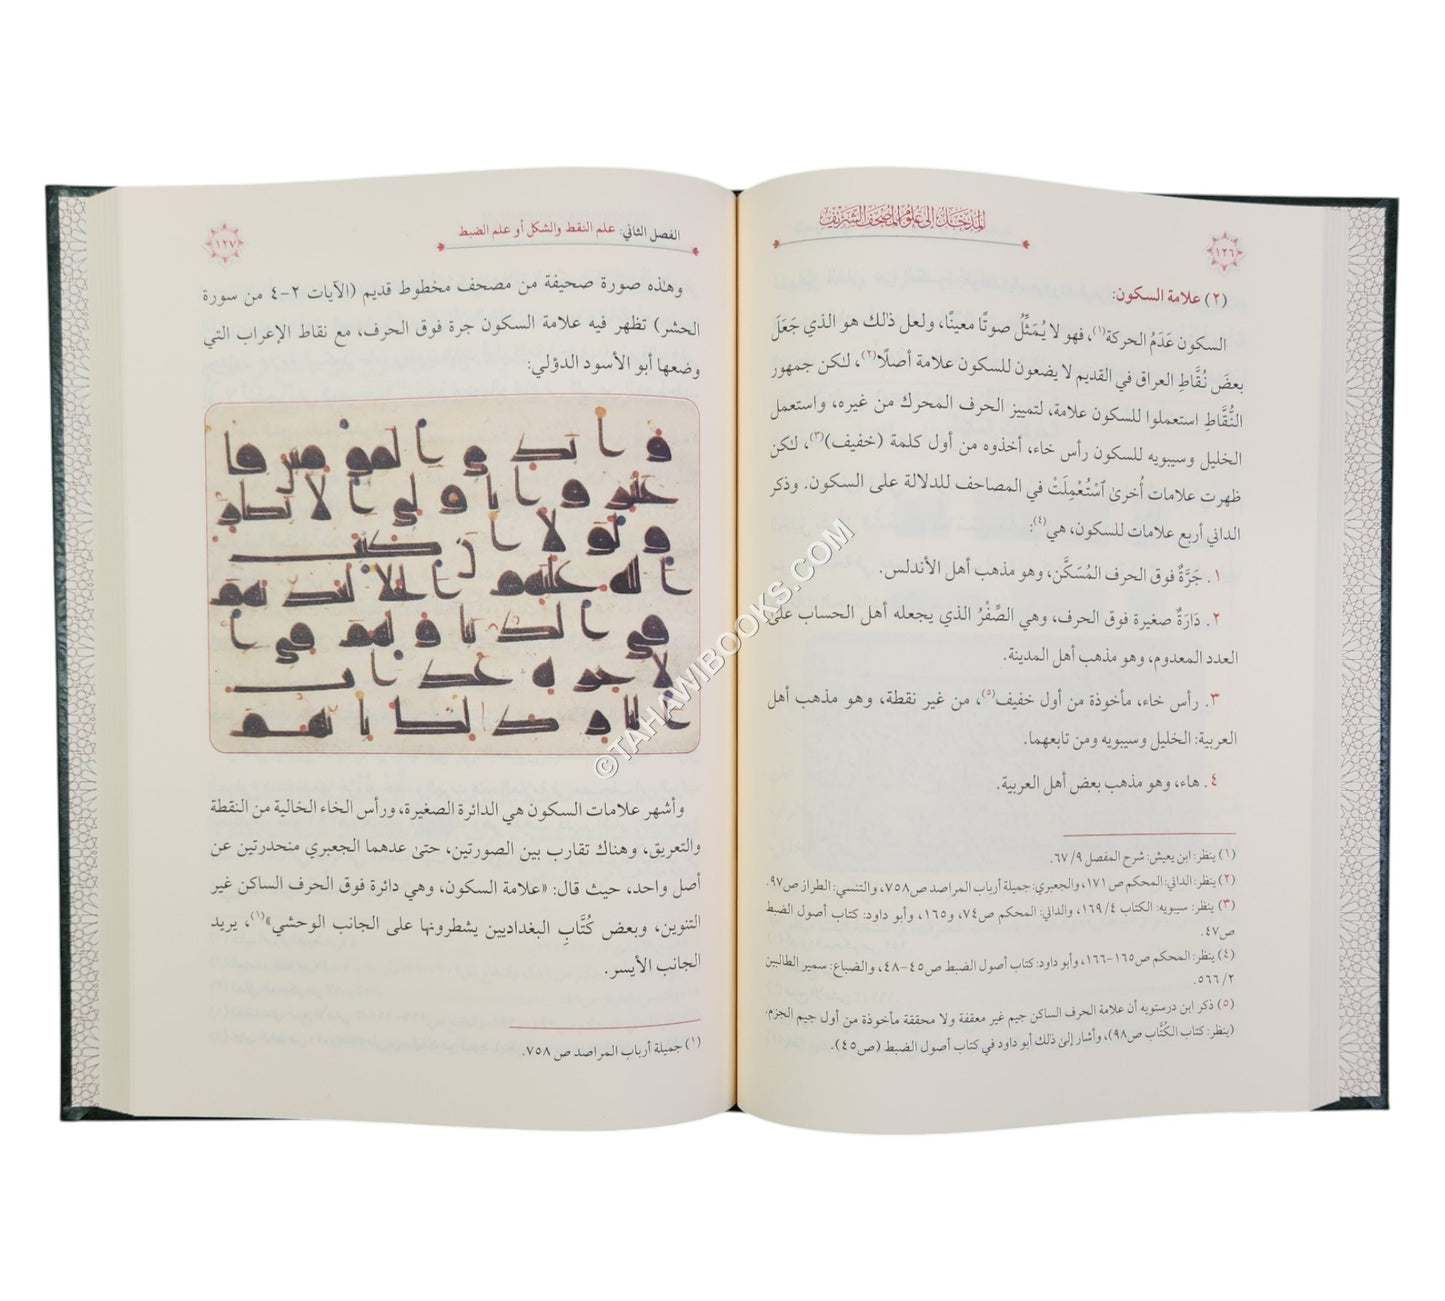 المدخل إلى علوم المصحف الشريف
١٢٦
(٢) علامة السكون:
السكون عَدَمُ الحركة(١)، فهو لا يُمَثِّلُ صوتًا معينًا، ولعل ذلك هو الذي جَعَلَ
بعضَ نُقَّاطِ العراق في القديم لا يضعون للسكون علامة أصلًا(٢)، لكن جمهور
النُّقَّاطِ استعملوا للسكون علامة، لتمييز الحرف المحرك من غيره، واستعمل
الخليل وسيبويه للسكون رأس خاء، أخذوه من أول كلمة (خفيف)(٣)، لكن
ظهرت علامات أُخرىٰ ٱسْتُعْمِلَتْ في المصاحف للدلالة على السكون. وذكر
الداني أربع علامات للسكون، هي(٤):
١. جَرَّةٌ فوق الحرف المُسَكَّن، وهو مذهب أهل الأندلس.
٢. دَارَةٌ صغيرة فوق الحرف، وهي الصِّفْرُ الذي يجعله أهل الحساب على
العدد المعدوم، وهو مذهب أهل المدينة.
٣. رأس خاء، مأخوذة من أول خفيف(٥)، من غير نقطة، وهو مذهب أهل
العربية: الخليل وسيبويه ومن تابعهما.
٤. هاء، وهو مذهب بعض أهل العربية.
(١) ينظر: ابن يعيش: شرح المفصل ٦٧/٩.
(٢) ينظر: الداني: المحكم ص١٧١، والجعبري: جميلة أرباب المراصد ص٧٥٨، والتنسي: الطراز ص٩٧.
(٣) ينظر: سيبويه: الكتاب ١٦٩/٤، والداني: المحكم ص٧٤، و١٦٥، وأبو داود: كتاب أصول الضبط
ص٤٧.
(٤) ينظر: المحكم ص١٦٥-١٦٦، وأبو داود: كتاب أصول الضبط ص٤٥-٤٨، والضباع: سمير الطالبين
٥٦٦/٢.
(٥) ذكر ابن درستويه أن علامة الحرف الساكن جيم غير معقفة ولا محققة مأخوذة من أول جيم الجزم.
(ينظر: كتاب الكُتَّاب ص٩٨)، وأشار إلىٰ ذلك أبو داود في كتاب أصول الضبط (ص٤٥).
الفصل الثاني: علم النقط والشكل أو علم الضبط
١٢٧
وهذه صورة صحيفة من مصحف مخطوط قديم (الآيات ٢-٤ من سورة
الحشر) تظهر فيه علامة السكون جرة فوق الحرف، مع نقاط الإعراب التي
وضعها أبو الأسود الدؤلي:
وأشهر علامات السكون هي الدائرة الصغيرة، ورأس الخاء الخالية من النقطة
والتعريق، وهناك تقارب بين الصورتين، حتىٰ عدهما الجعبري منحدرتين عن
أصل واحد، حيث قال: «علامة السكون، وهي دائرة فوق الحرف الساكن غير
التنوين، وبعض كُتَّابِ البغداديين يشطرونها على الجانب الوحشي»(١)، يريد
الجانب الأيسر.
(١) جميلة أرباب المراصد ص ٧٥٨.
©TAHAWIBOOKS.COM